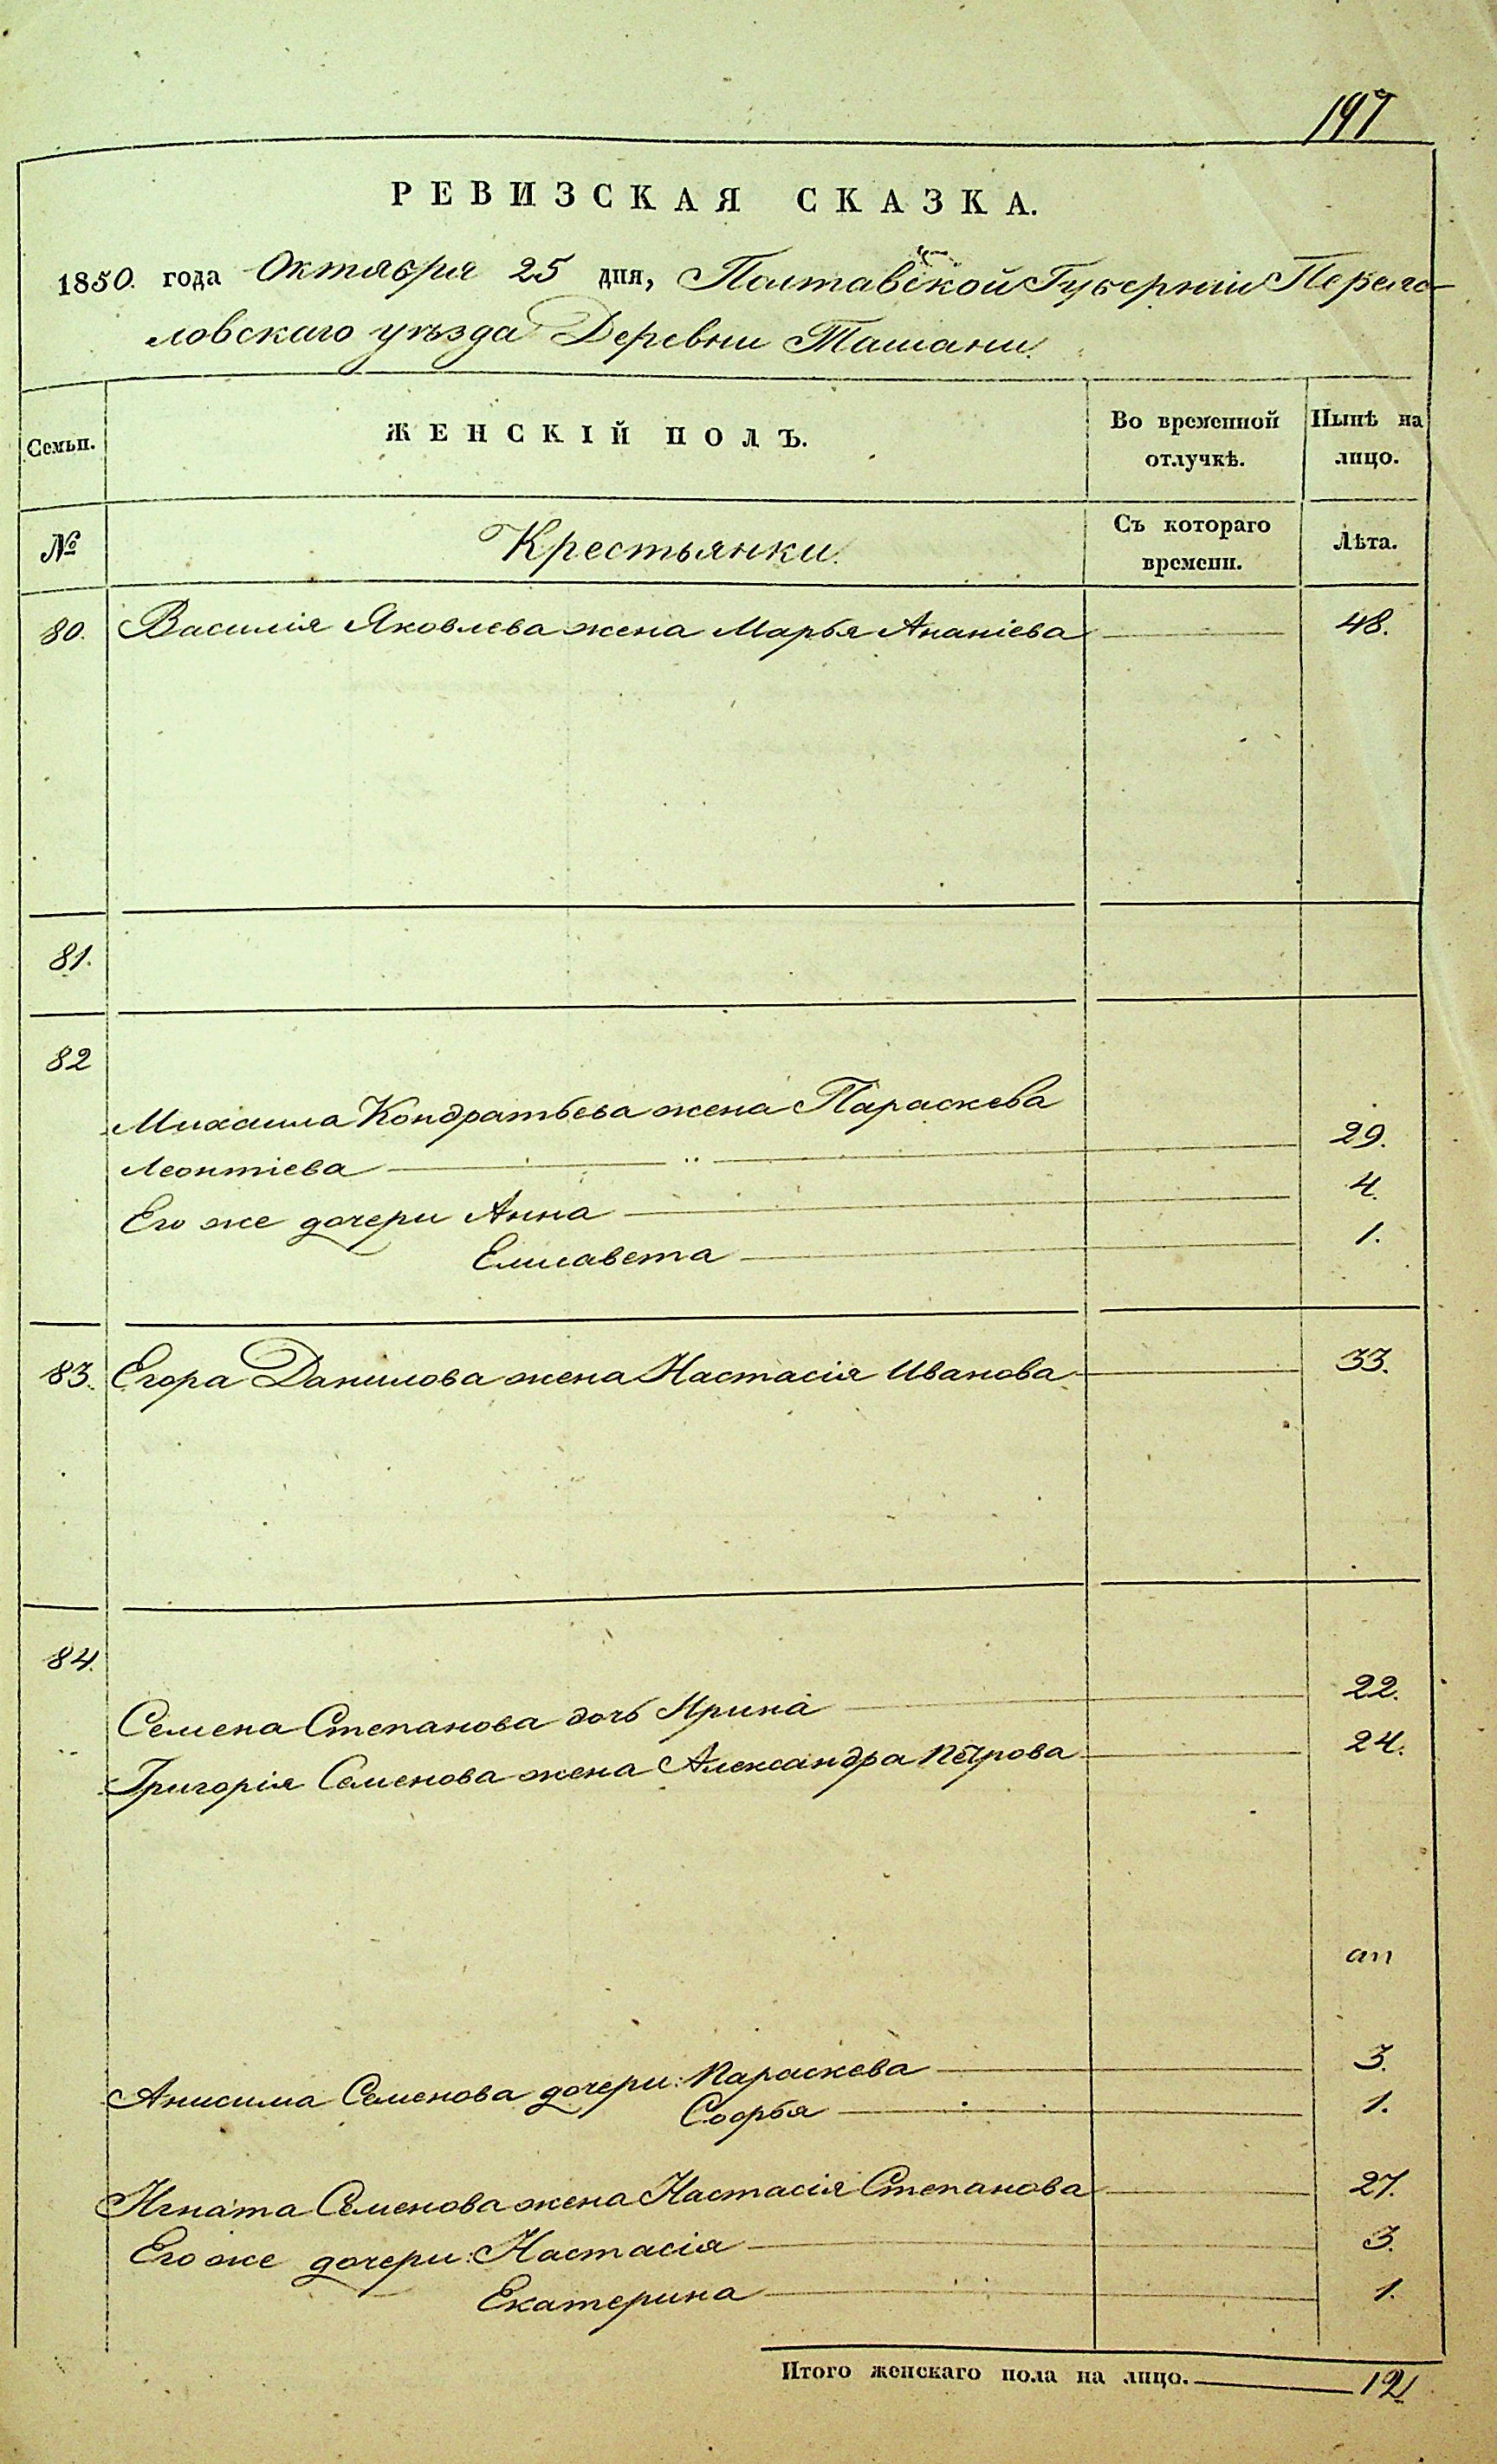 197
РЕВИЗСКАЯ СКАЗКА.
1850. года Октября 25 дня, Полтавской Губерніи Переяс-
ловскаго уѣзда Деревни Ташани.
Семьи. ЖЕНСКІЙ ПОЛЪ. Во временной отлучкѣ. Нынѣ на лицо.
№ Крестьянки. Съ котораго времени. Лѣта.
80. Василія Яковлева жена Марья Ананіева 48.
81.
82
Михаила Кондратьева жена Параскева
Леонтіева 29.
Его же дочери Анна 4.
Елисавета 1.
83. Егора Данилова жена Настасія Иванова 33.
84.
Семена Степанова дочь Ирина 22.
Григорія Семенова жена Александра Петрова 24.
Анисима Семенова дочери: Параскева 3.
Софья 1.
Игната Семенова жена Настасія Степанова 27.
Его же дочери: Настасія 3.
Екатерина 1.
Итого женскаго пола на лицо. 12